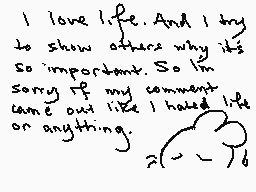 I love life. And I try
to show others why it's
so important. So I'm
sorry if my comment
came out like I hated life
or anything.